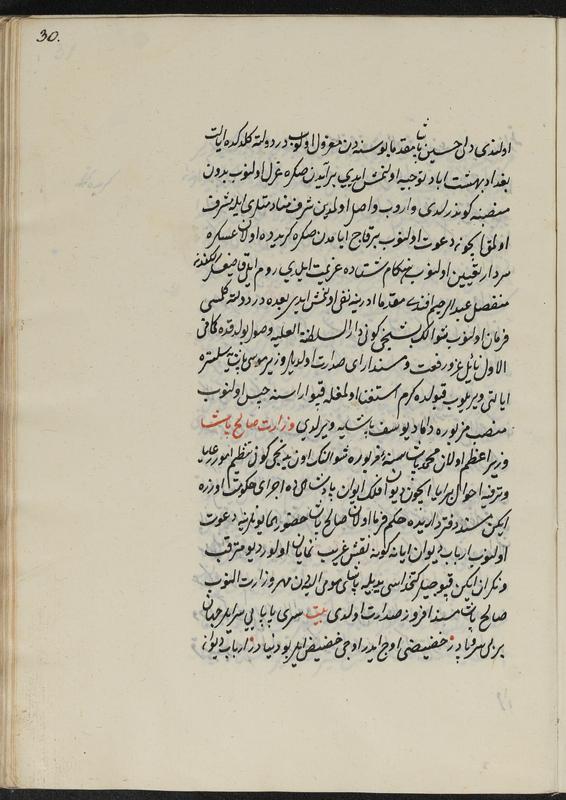 30.
اولندی دلی حسین پاشا مقدما بوسنه دن معزول اولوب در دولته کلدکده ایالت
بغداد بهشت اباد توجیه اولنمش ایدی بر آیدن صکره عزل اولنوب بدون
منصبنه کوندرلدی واروب واصل اولمدین شرف
اولمق ایچون دعوت اولنوب بر قاچ ایامدن صکره کریده ده اولان عسکره
سردار تعیین اولنوب هنکام شتاده عزیمت ایلدی روم ایلی قاضیعسکرلکندن
منفصل عبدالرحیم افندی مقدما ادرنه یه نفی اولنمش ایدی بعده در دولته کلمسی
فرمان اولنوب شوالک بشنجی کونی دار السلطنة العلیه وصول بولدقده کافی
الاول نائل عز و رفعت و مسند ارای صدارت اولدیلر وزیر موسی پاشایه سلستره
ایالتی ویریلوب قبولده کرم استغنا اولمغله قپوارا سنه حبس اولنوب
منصب مزبوره داماد یوسف پاشایه ویرلدی وزارت صالح پاشا
وزیر اعظم اولان محمد پاشا سنهٔ مزبوره شوالنک اون یدنجی کونی تنظیم امور رعایا
وترفیه احوال برایا ایچون دیوان فلک ایوان پادشاهیده اجرای حکومت اوزره
ایکن مسند دفترداریده حکم فرما اولان صالح پاشا حضور همایونلرینه دعوت
اولنوب ارباب دیوان ایا نه کونه نقش غریب نمایان اولور دیو مترقب
و نکران ایکن قپوجیلر کتخداسی یدیله پاشای مومی الیهدن مهر وزارت النوب
صالح پاشا مسند افروز صدارت اولدی بیت سری پا پایی سر ایلر جهان
بر بی سر و پادر حضیضی اوج ایدر اوجی حضیض ایلر بو دنیادر ارباب دیوان